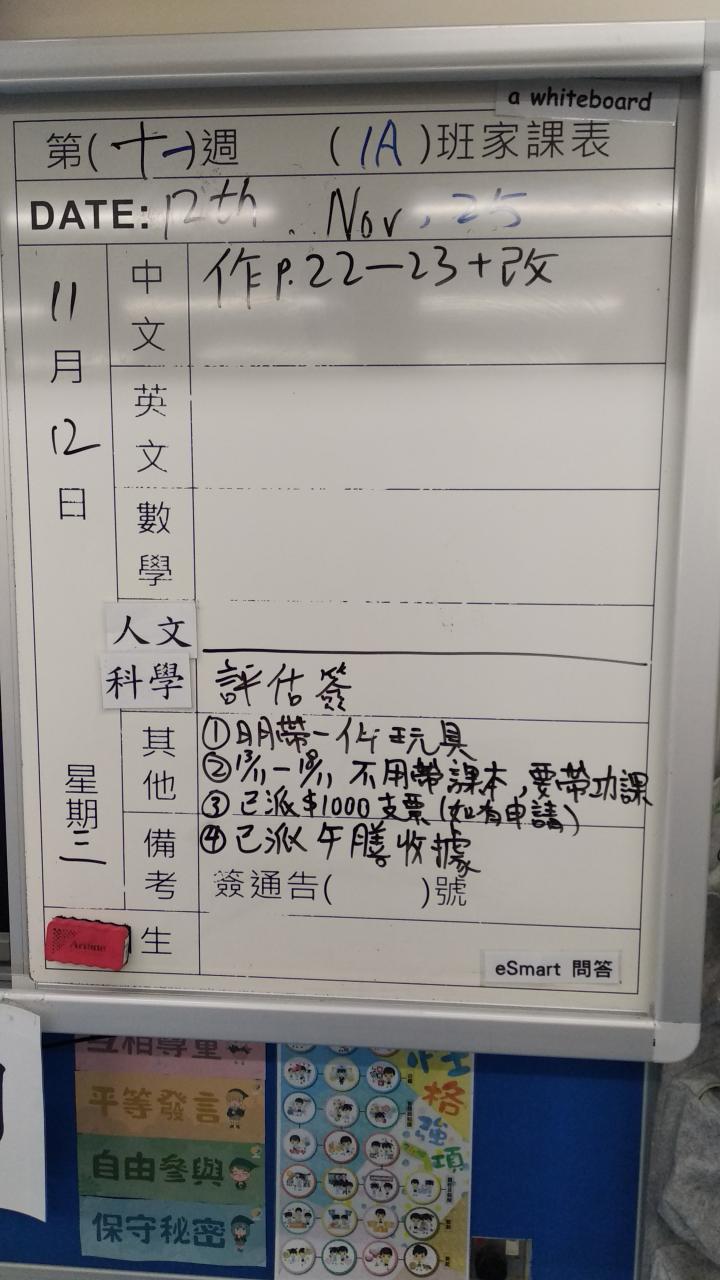 a whiteboard
第(十一)週 (1A)班家課表
DATE: 12th. Nov, 25
11月12日
星期三
中文 作 p.22—23+改
英文
數學
人文
科學 評估簽
其他 ①明帶一件玩具
②13/11—18/11 不用帶課本,要帶功課
③已派$1000支票(如有申請)
備考 ④已派午膳收據
簽通告( )號
生
eSmart 問答
互相尊重
平等發言
自由參與
保守秘密
性格強項